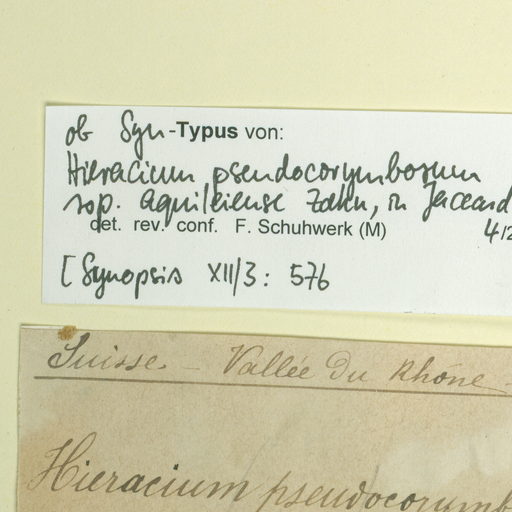 ob Syn-Typus von:
Hieracium pseudocorymbosum
ssp. aquileiense Zahn, in Jaccard
det. rev. conf. F. Schuhwerk (M) 4/2
[Synopsis XII/3: 576
Suisse - Vallée du Rhône -
Hieracium pseudocorymb